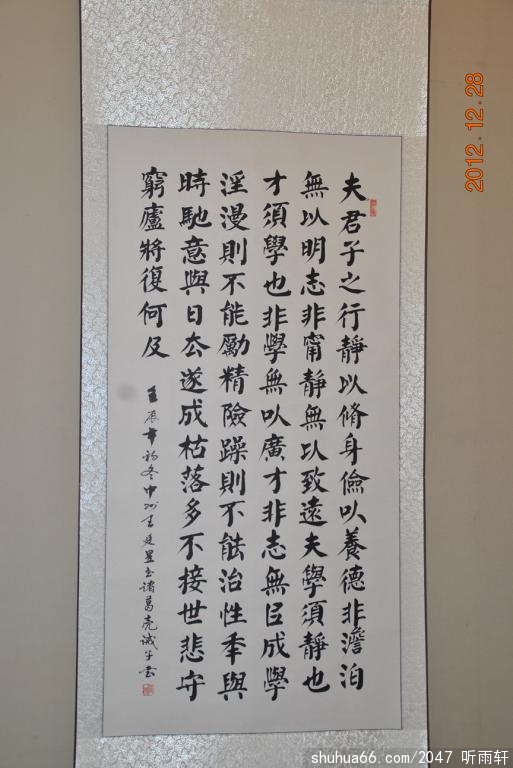 夫君子之行靜以脩身儉以養德非澹泊
無以明志非甯靜無以致遠夫學須靜也
才須學也非學無以廣才非志無㠯成學
淫漫則不能勵精險躁則不能治性年與
時馳意與日去遂成枯落多不接世悲守
窮廬將復何及
壬辰年初冬申州王廷昱书諸葛亮诫子书
2012.12.28
shuhua66.com/2047 听雨轩